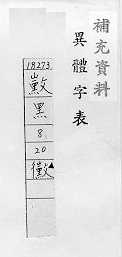 補充資料
異體字表
18273
黑
8
20